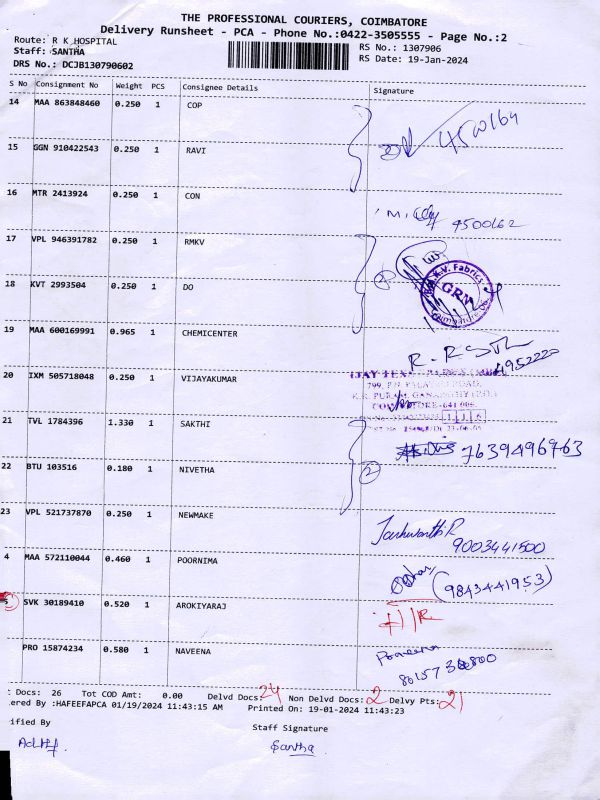 THE PROFESSIONAL COURIERS, COIMBATORE
Delivery Runsheet - PCA - Phone No.:0422-3505555 - Page No.:2
Route: R K HOSPITAL
Staff: SANTHA
DRS No.: DCJB130790602
RS No.: 1307906
RS Date: 19-Jan-2024
S No Consignment No Weight PCS Consignee Details Signature
14 MAA 863848460 0.250 1 COP
4500164
15 GGN 910422543 0.250 1 RAVI
16 MTR 2413924 0.250 1 CON
M. 4500162
17 VPL 946391782 0.250 1 RMKV
K.V. Fabrics
GRN
2
18 KVT 2993504 0.250 1 DO
19 MAA 600169991 0.965 1 CHEMICENTER
4952220
20 IXM 505718048 0.250 1 VIJAYAKUMAR
21 TVL 1784396 1.330 1 SAKTHI
7639496763
22 BTU 103516 0.180 1 NIVETHA
2
23 VPL 521737870 0.250 1 NEWMAKE
Jashwanth R
9003441500
4 MAA 572110044 0.460 1 POORNIMA
(9843441953)
SVK 30189410 0.520 1 AROKIYARAJ
PRO 15874234 0.580 1 NAVEENA
Praveena
: Docs: 26 Tot COD Amt: 0.00 Delvd Docs: 24 Non Delvd Docs: 2 Delvy Pts: 21
ered By :HAFEEFAPCA 01/19/2024 11:43:15 AM Printed On: 19-01-2024 11:43:23
ified By
Staff Signature
Santha